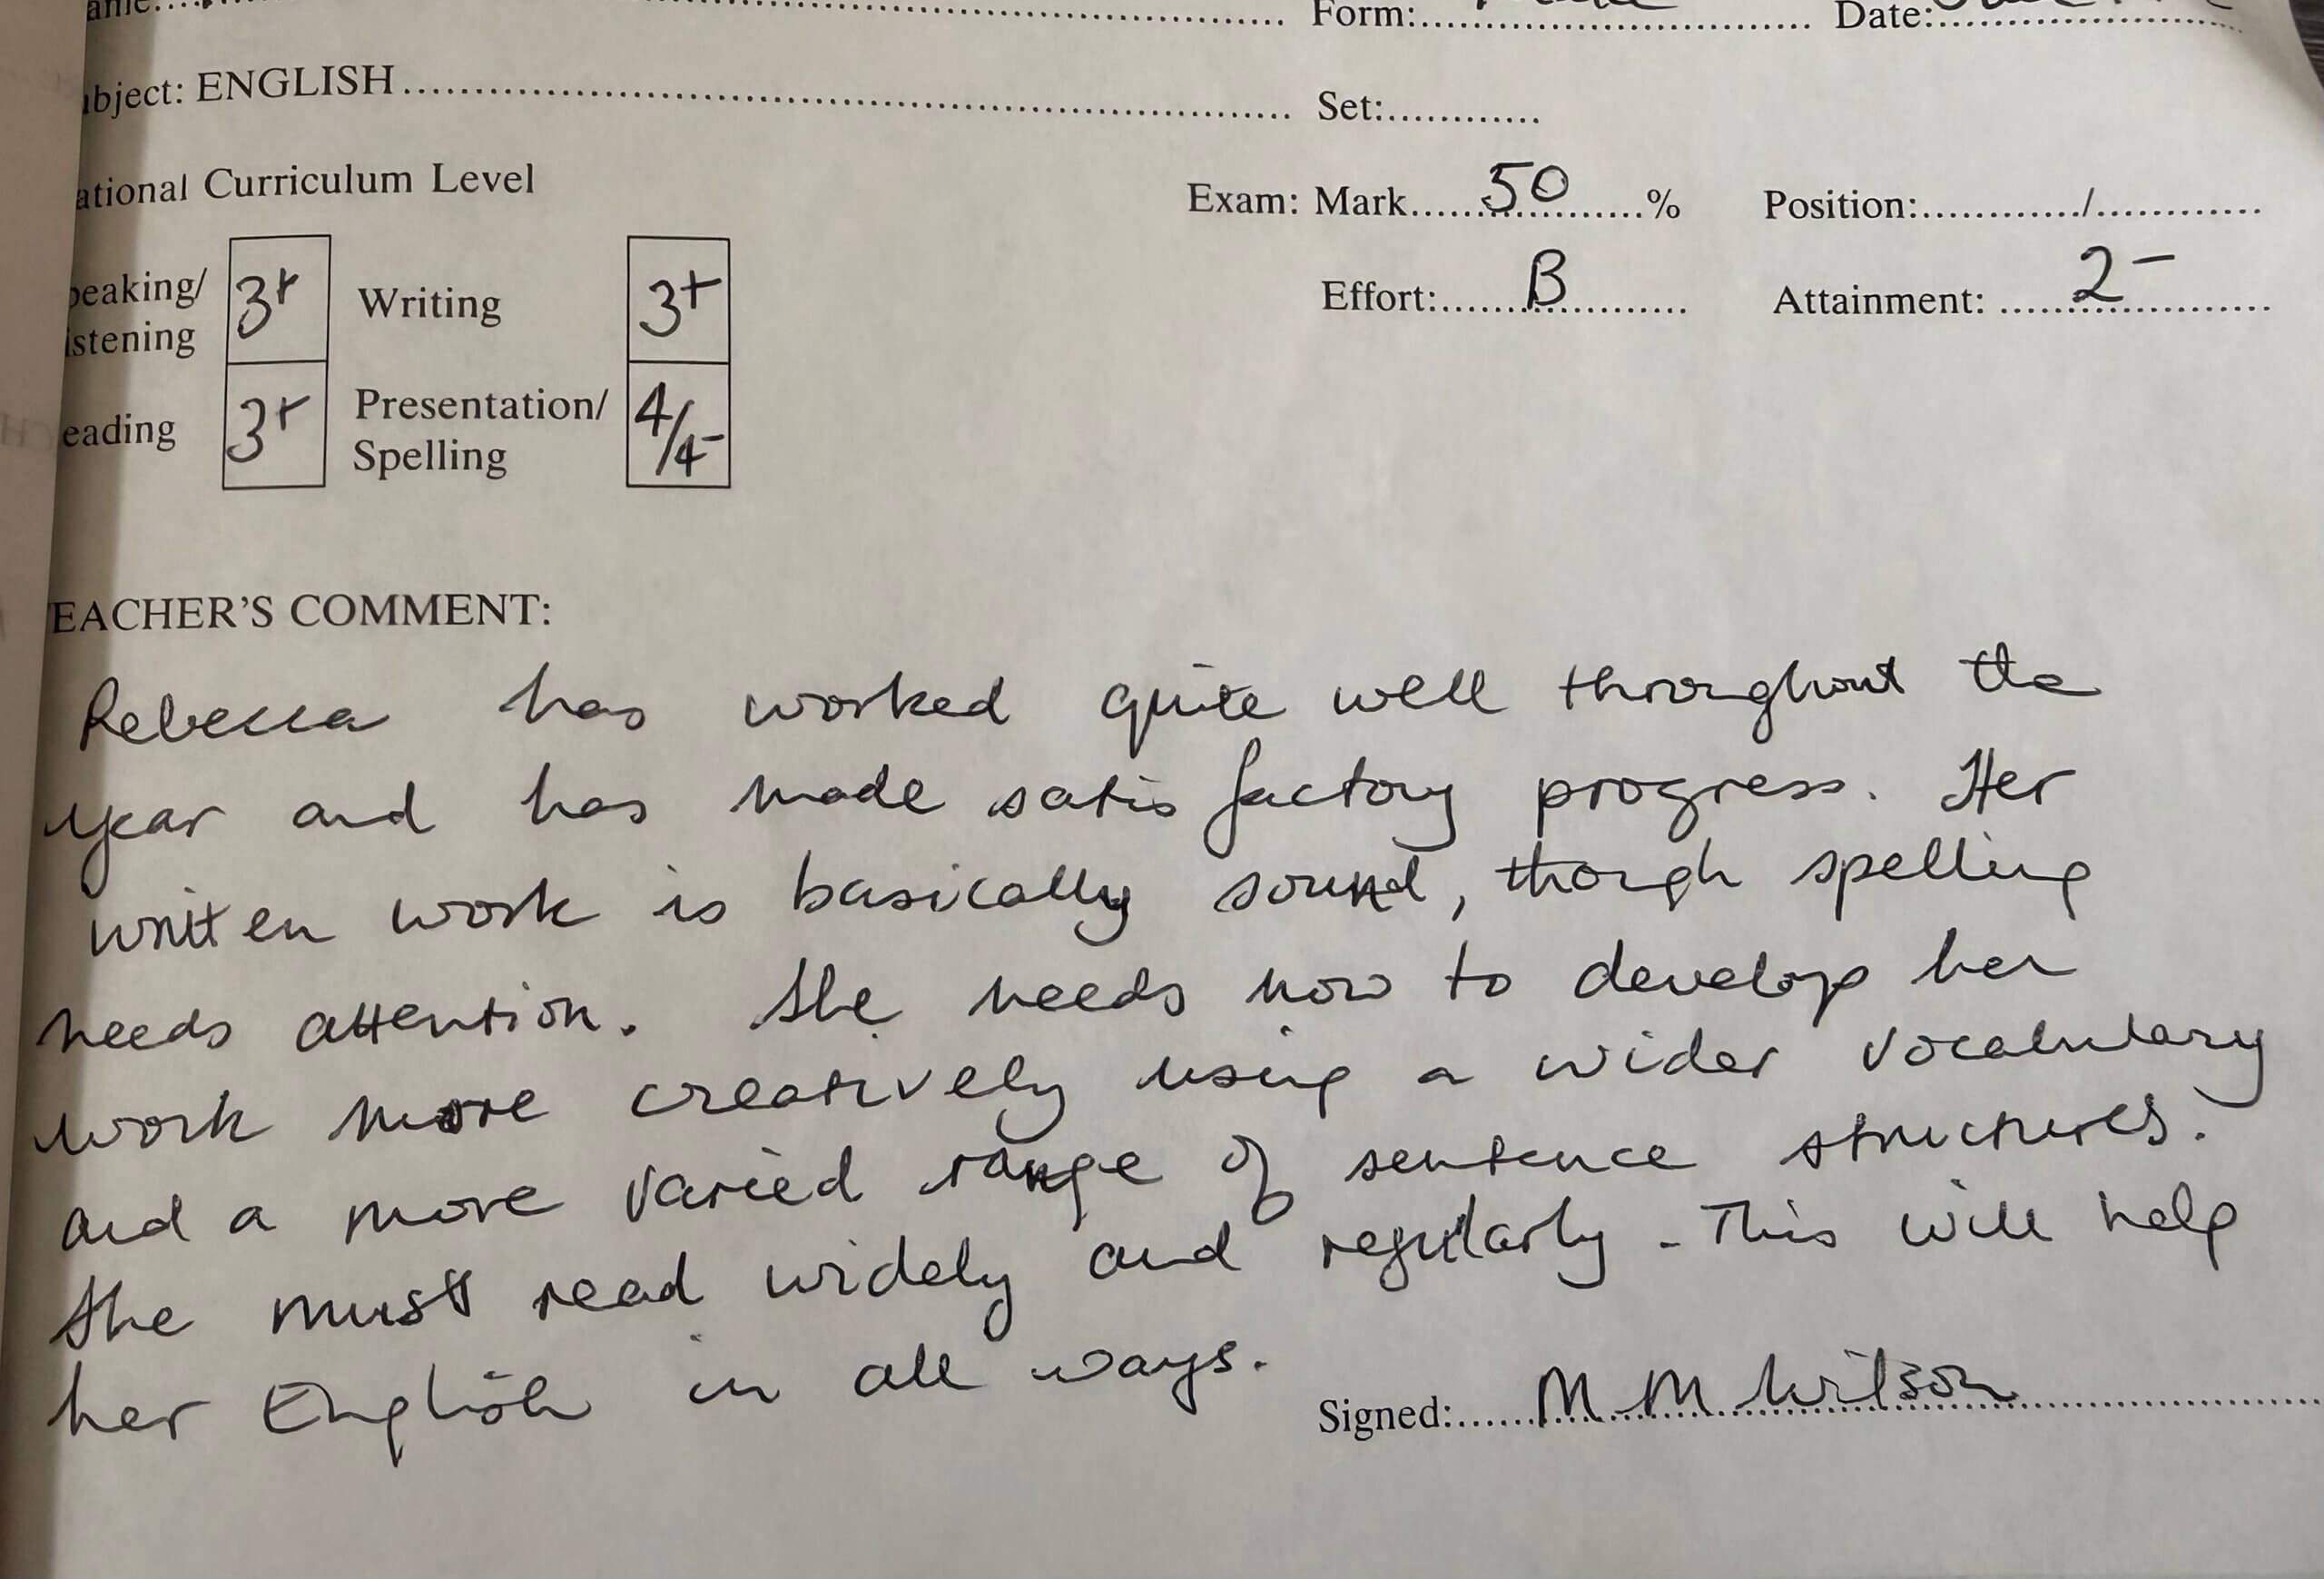 Form: Date:
ubject: ENGLISH Set:
ational Curriculum Level
Exam: Mark 50 % Position: /
peaking/ istening 3+ Writing 3+ Effort: B Attainment: 2-
eading 3+ Presentation/ Spelling 4/4-
EACHER'S COMMENT:
Rebecca has worked quite well throughout the
year and has made satisfactory progress. Her
written work is basically sound, though spelling
needs attention. She needs now to develop her
work more creatively using a wider vocabulary
and a more varied range of sentence structures.
She must read widely and regularly. This will help
her English in all ways.
Signed: M M Wilson